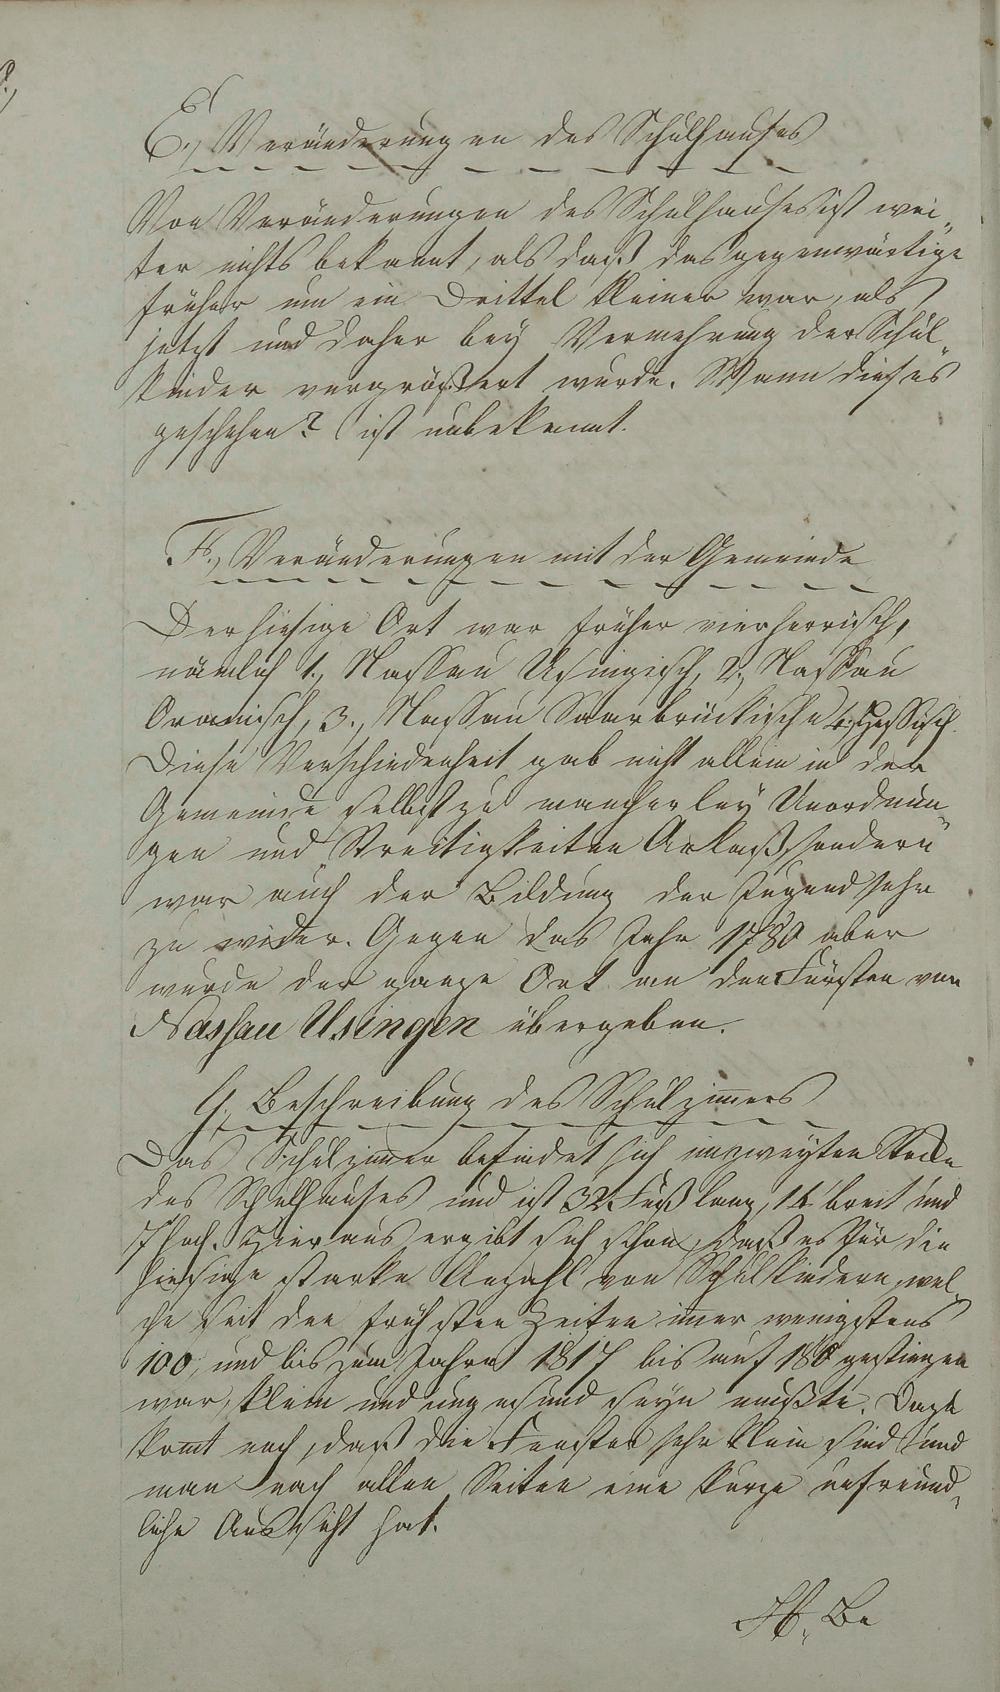 E., Veränderungen des Schulhauses
Von Veränderungen des Schulhauses ist wei„
ter nichts bekannt, als daß das gegenwärtige
früher um ein Drittel kleiner war, als
jetzt und daher bey Vermehrung der Schul„
kinder vergrößert wurde. Wann dieses
geschehen? ist unbekannt.
F., Veränderungen mit der Gemeinde
Der hiesige Ort war früher vierherrisch,
nämlich 1., Nassau Usingisch, 2., Nassau
Oranisch, 3., Nassau Saarbrückische u 4., Hessisch.
Diese Verschiedenheit gab nicht allein in der
Gemeinde selbst zu mancherley Unordnun„
gen und Streitigkeiten Anlaß, sondern
war auch der Bildung der Jugend sehr
zu wider. Gegen das Jahr 1780 aber
wurde der ganze Ort an den Fürsten von
Nassau Usingen übergeben.
G., Beschreibung des Schulzim̄ers
Das Schulzim̄er befindet sich im zweyten Stocke
des Schulhauses und ist 32 Fuß lang, 14 breit und
7 hoch. Hieraus ergibt sich schon, daß es für die
hiesige starke Anzahl von Schulkindern, wel„
che seit den frühsten Zeiten im̄er wenigstens
100, und bis zum Jahre 1817 bis auf 180 gestiegen
war, klein und ungesund seyn mußte. Dazu
kom̄t noch, daß die Fenster sehr klein sind und
man nach allen Seiten eine kurze unfreund„
liche Aussicht hat.
H., Be